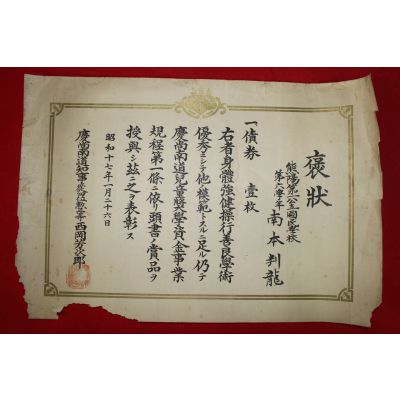 褒狀
熊陽第一公立國民學校
第六學年 南本判龍
一債券 壹枚
右者身體強健操行善良學術
優秀ニシテ他ノ模範トスルニ足ル仍テ
慶尚南道兒童奬學資金事業
規程第一條ニ依リ頭書ノ賞品ヲ
授與シ茲ニ之ヲ表彰ス
昭和十七年一月二十六日
慶尚南道知事從四位勲三等西岡芳次郎